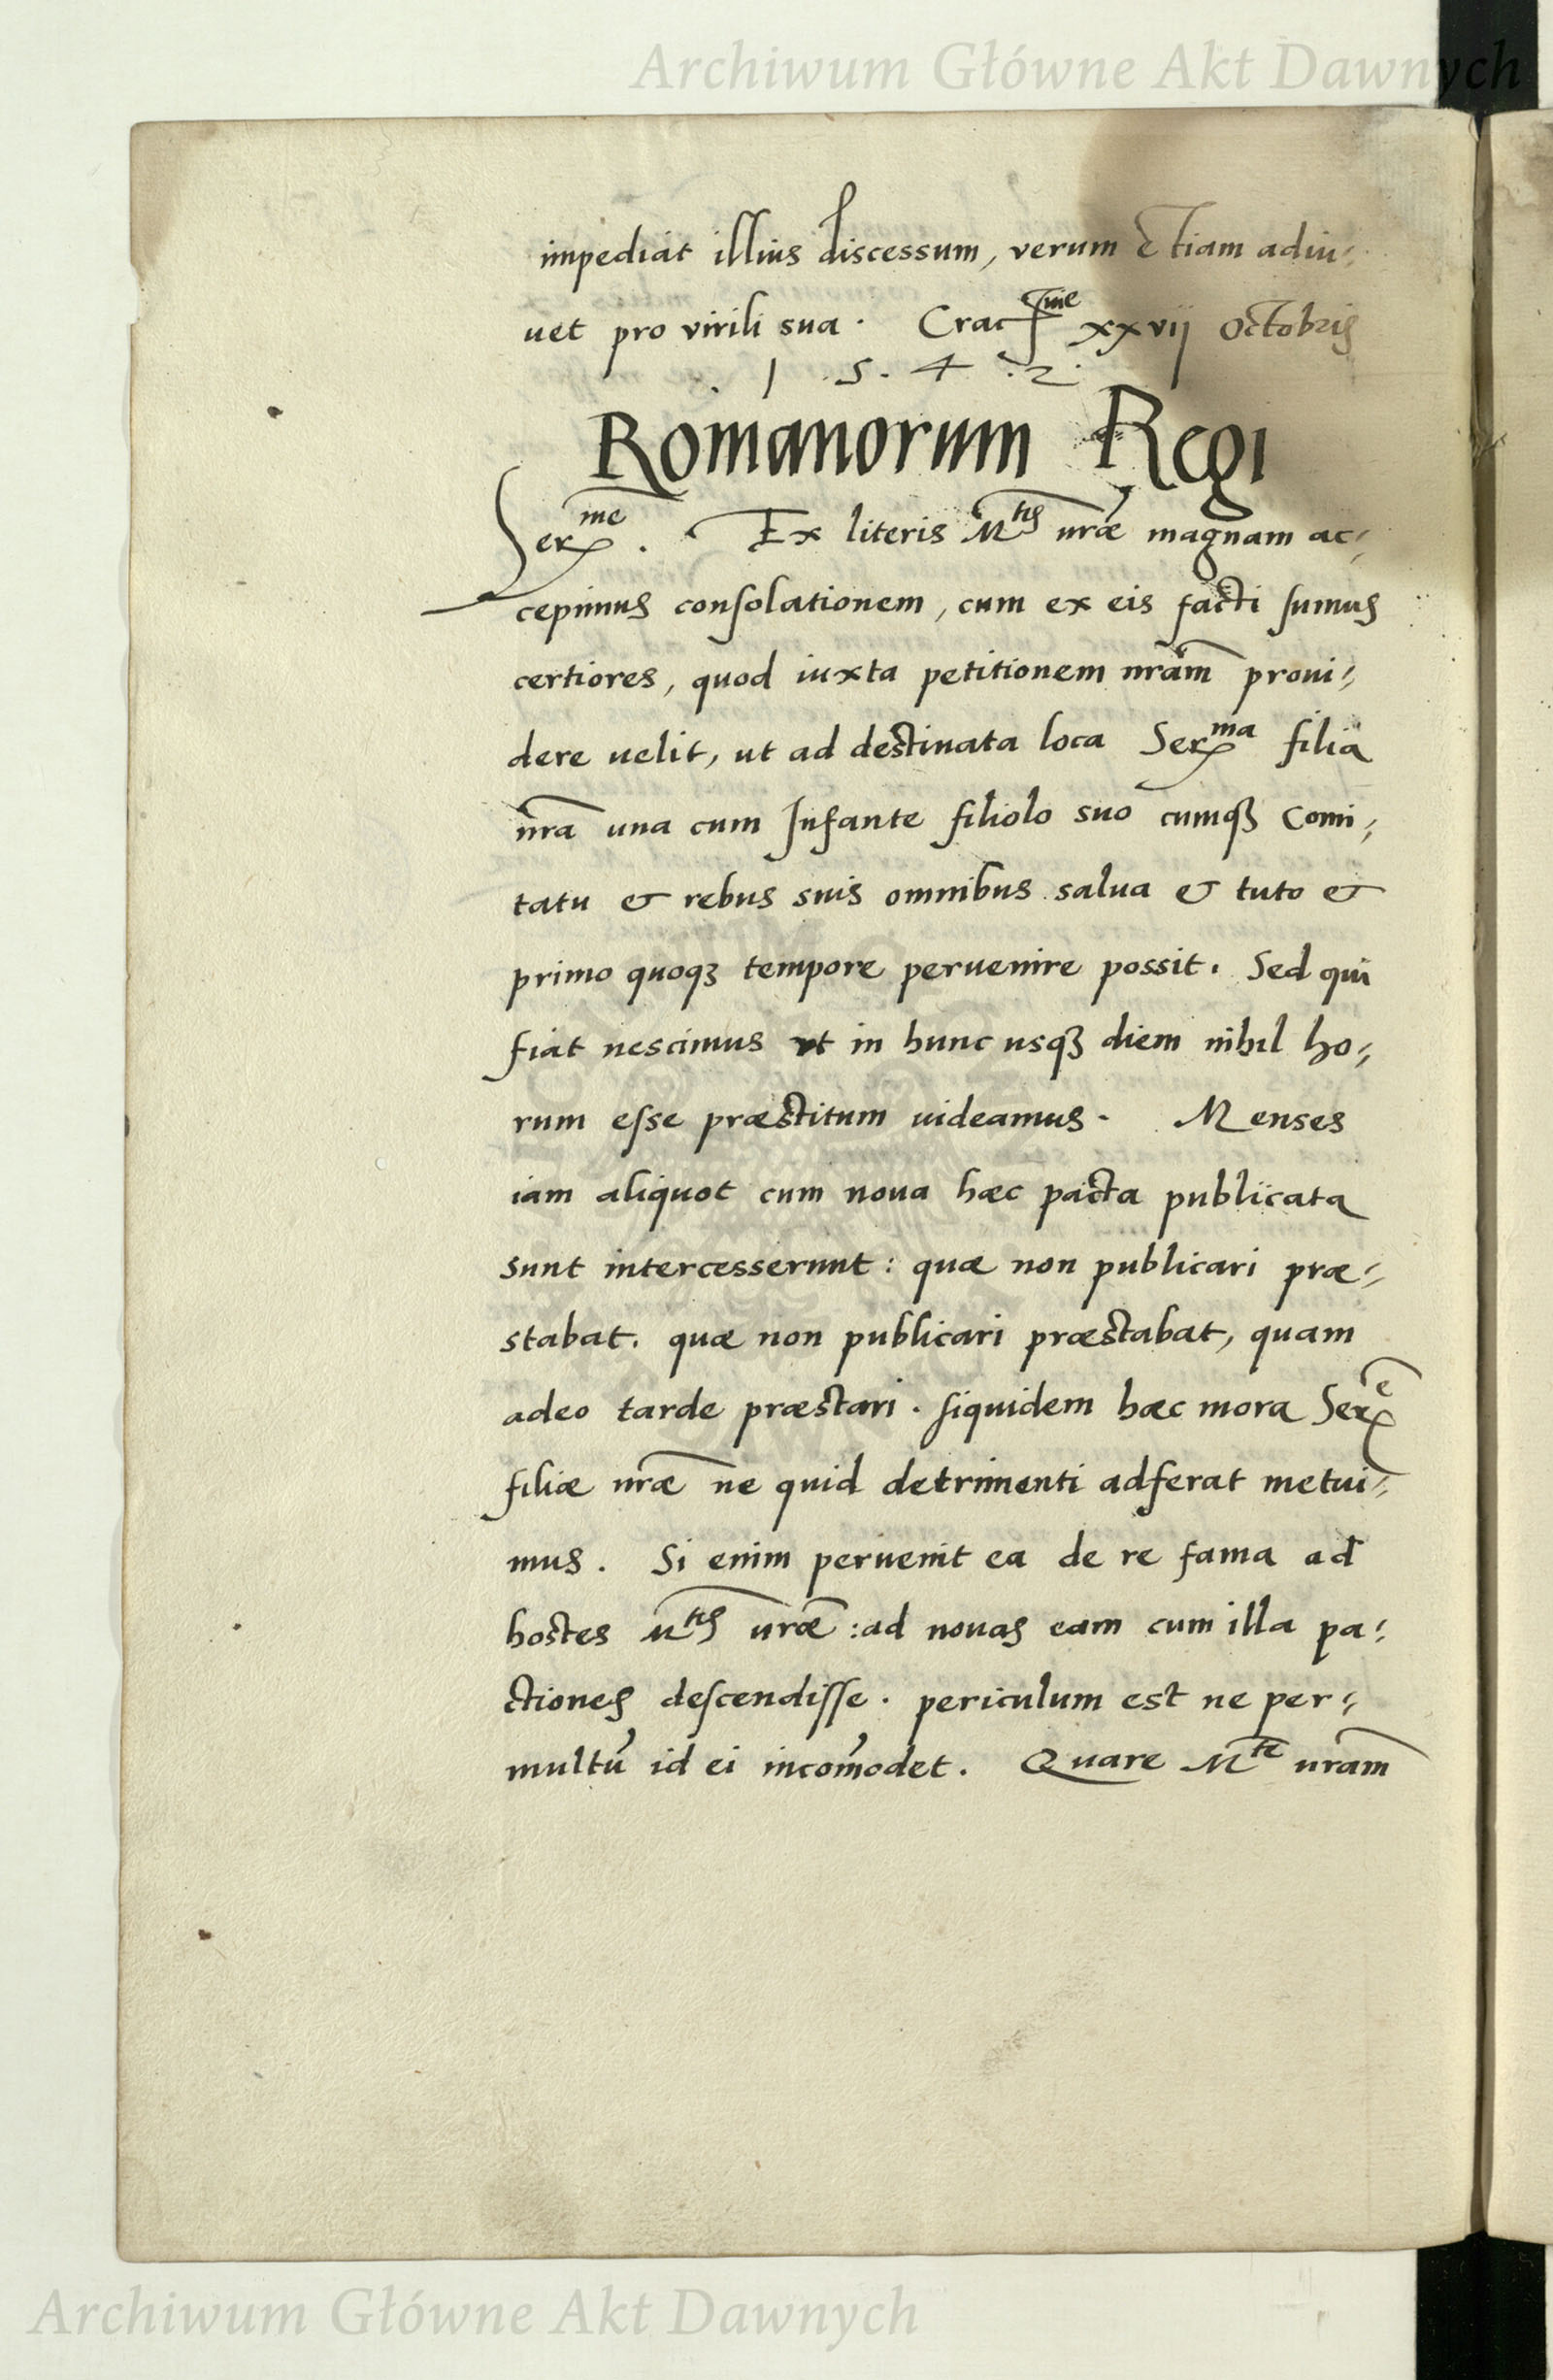 Archiwum Główne Akt Dawnych
impediat illius discessum, verum Etiam adiu-
uet pro virili sua. Crac me xxvij Octobris
. 1 . 5 . 4 . 2 .
Romanorum Regi
Ser me. Ex literis M tis nrae magnam ac-
cepimus consolationem, cum ex eis facti sumus
certiores, quod iuxta petitionem nram proui-
dere uelit, ut ad destinata loca Ser ma filia
nra una cum Infante filiolo suo cumqȝ Comi-
tatu & rebus suis omnibus salua & tuto &
primo quoqȝ tempore peruenire possit. Sed qui
fiat nescimus ut in hunc usqȝ diem nihil ho-
rum esse præstitum uideamus. Menses
iam aliquot cum noua hæc pacta publicata
sunt intercesserunt: quæ non publicari præ-
stabat. quæ non publicari præstabat, quam
adeo tarde præstari. siquidem hæc mora Ser e
filiæ nræ ne quid detrimenti adferat metui-
mus. Si enim peruenit ea de re fama ad
hostes M tis uræ: ad nouas eam cum illa pa-
ctiones descendisse. periculum est ne per-
multū id ei incōmodet. Quare M te uram
Archiwum Główne Akt Dawnych